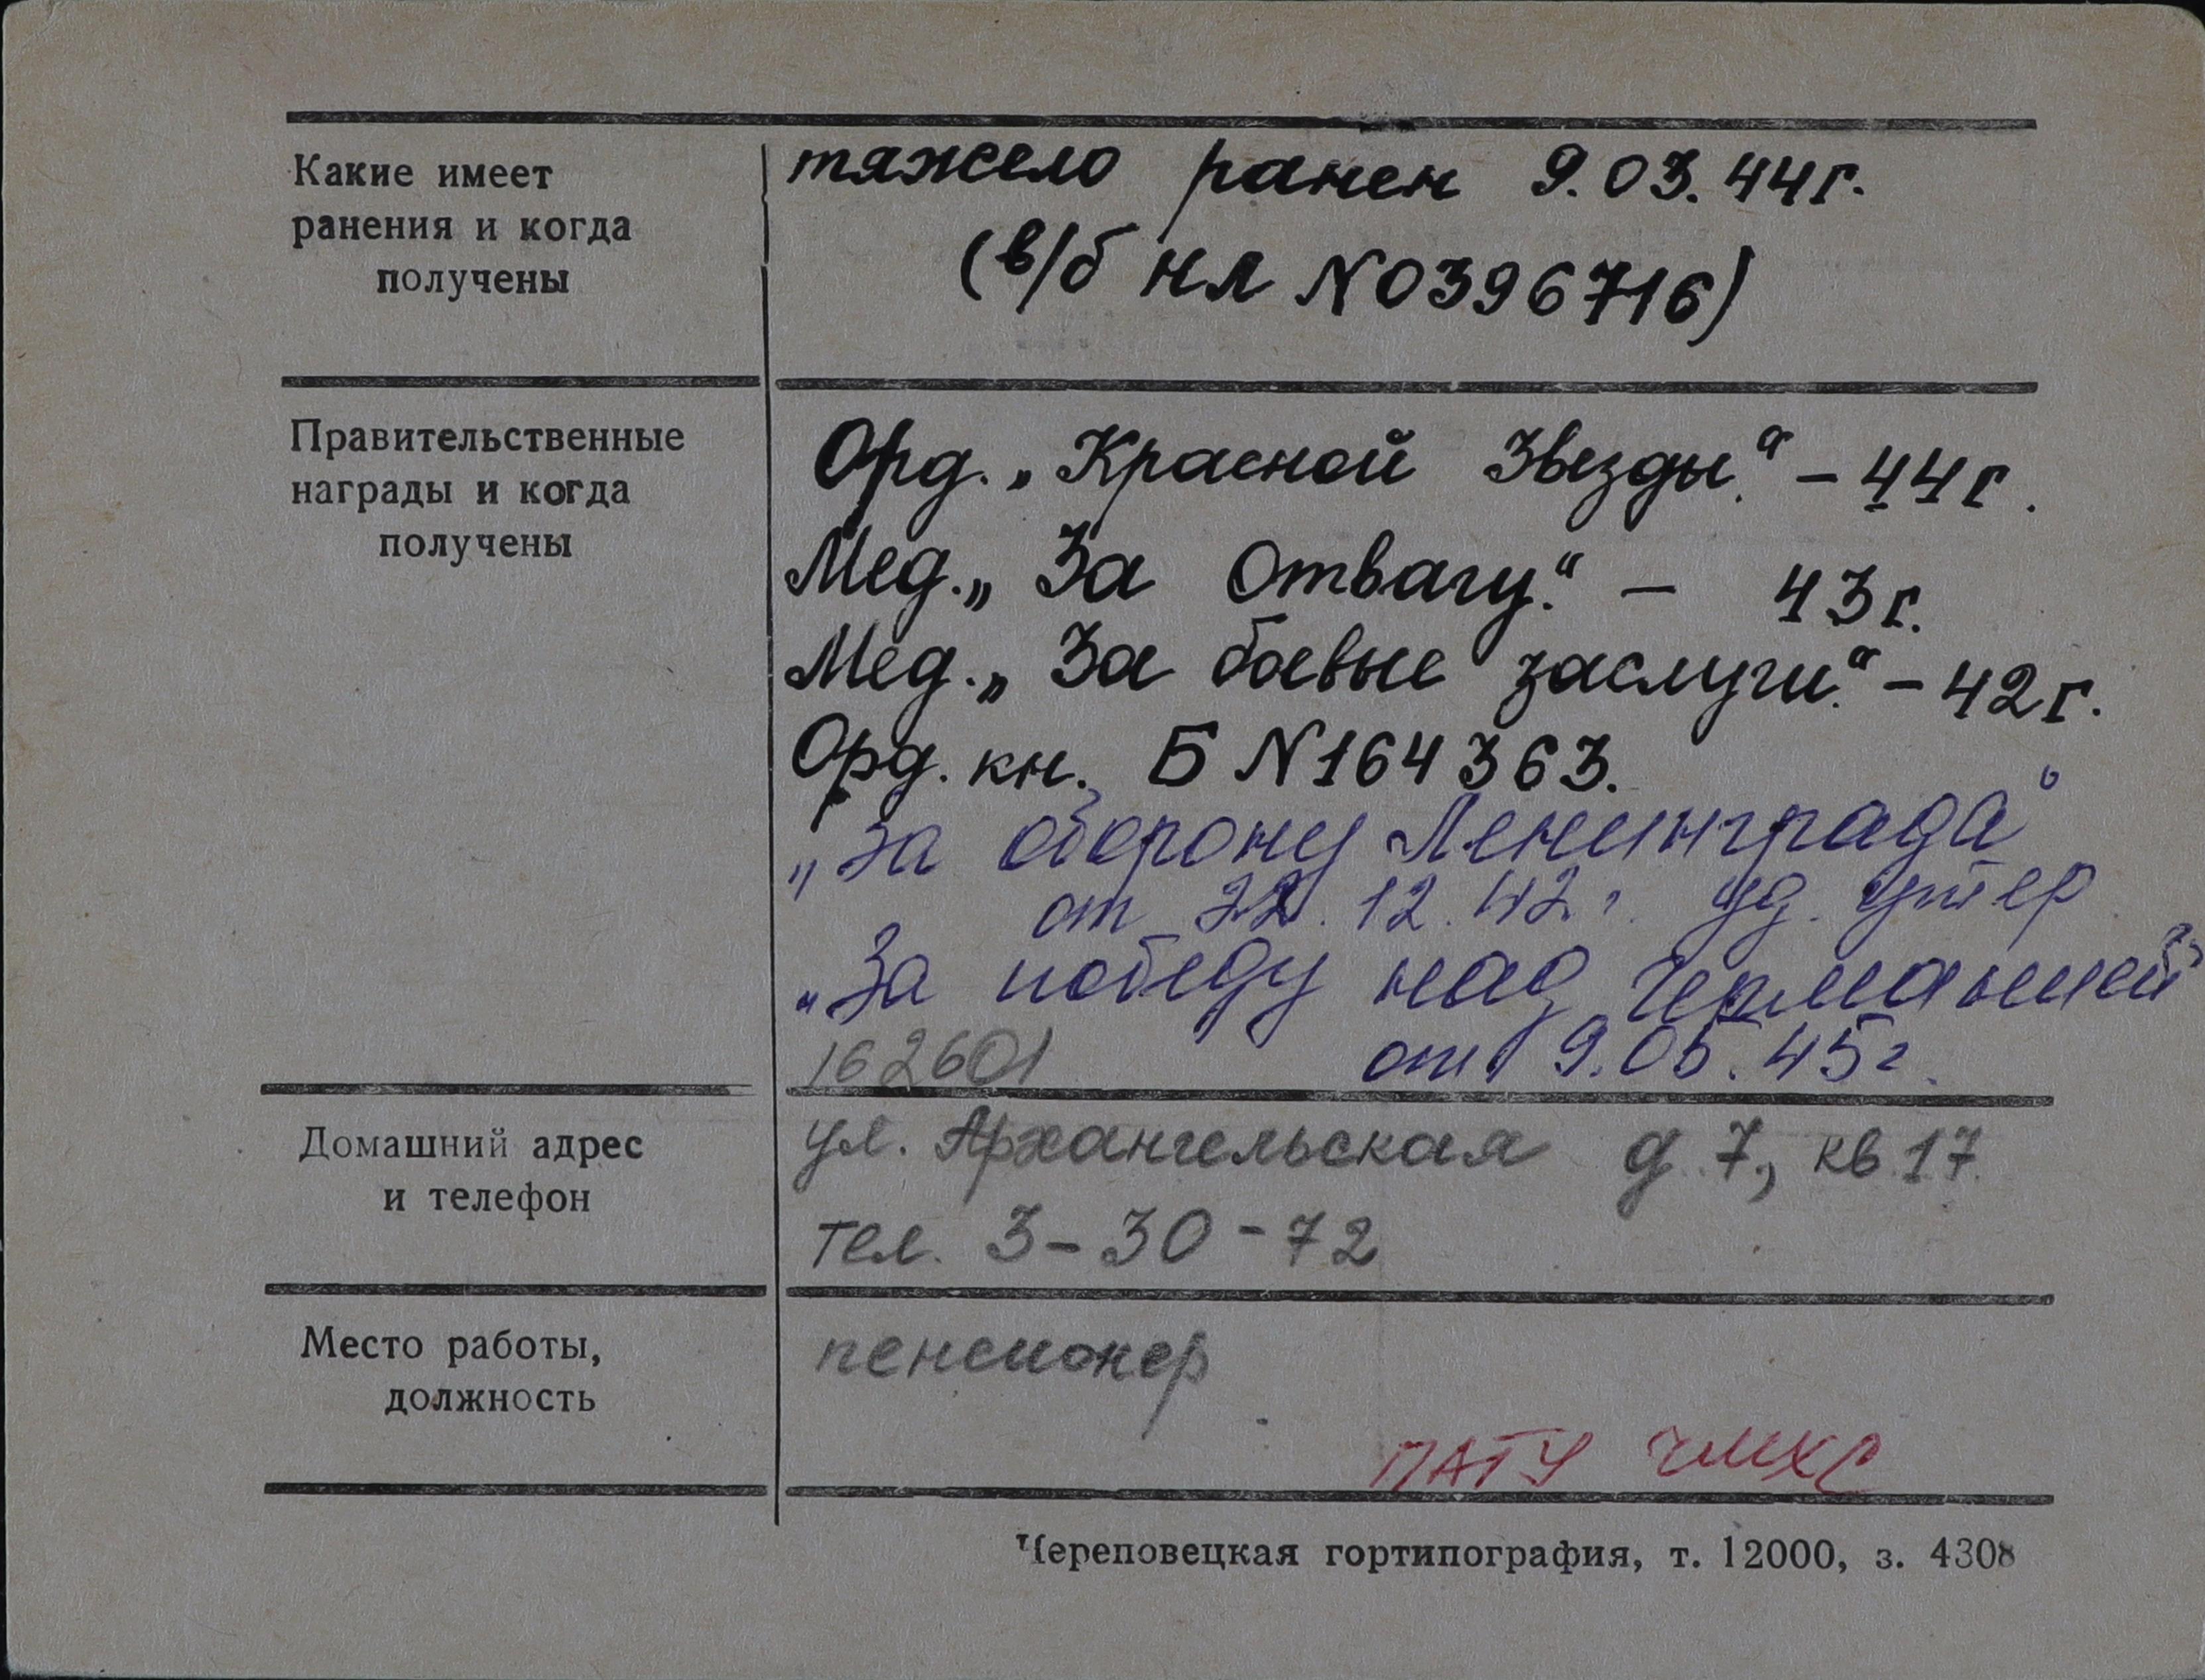 Какие имеет
ранения и когда
получены
тяжело ранен 9.03.44г.
(в/б НЛ N0396716)
Правительственные
награды и когда
получены
Орд. „Красной Звезды." – 44г.
Мед. „За Отвагу." – 43г.
Мед. „За боевые заслуги." – 42г.
Орд. кн. Б N164363.
„За оборону Ленинграда"
от 22.12.42г. уд. утер
„За победу над Германией"
162601 от 9.05.45г.
Домашний адрес
и телефон
ул. Архангельская д. 7, кв 17.
тел. 3-30-72
Место работы,
должность
пенсионер
ПАТУ ЧМХС
Череповецкая гортипография, т. 12000, з. 4308